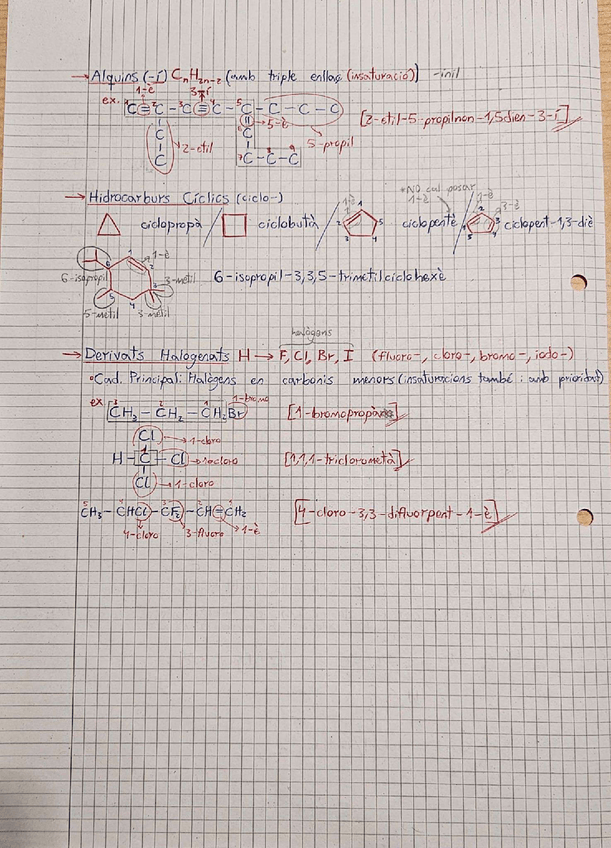 → Alquins (-í) CnH2n-2 (amb triple enllaç (insaturació)) -inil
1-è 3-í
ex. C ≡ C - C ≡ C - C - C - C - C
C → 2-etil C → 5-è 5-propil [2-etil-5-propilnon-1,5dien-3-í]
C C - C - C
→ Hidrocarburs Cíclics (ciclo-) *NO cal posar 1-è
ciclopropà / ciclobutà / ciclopentè / ciclopent-1,3-diè
1-è
6-isopropil 3-metil 6-isopropil-3,3,5-trimetilciclohexè
5-metil 3-metil
halògens
→ Derivats Halogenats H → F, Cl, Br, I (fluoro-, cloro-, bromo-, iodo-)
•Cad. Principal: Halògens en carbonis menors (insaturacions també: amb prioritat)
1-bromo
ex CH3 - CH2 - CH2Br [1-bromopropà]
Cl → 1-cloro
H - C - Cl → 1-cloro [1,1,1-triclorometà]
Cl → 1-cloro
CH3 - CHCl - CF2 - CH = CH2 [4-cloro-3,3-difluorpent-1-è]
4-cloro 3-fluoro 1-è